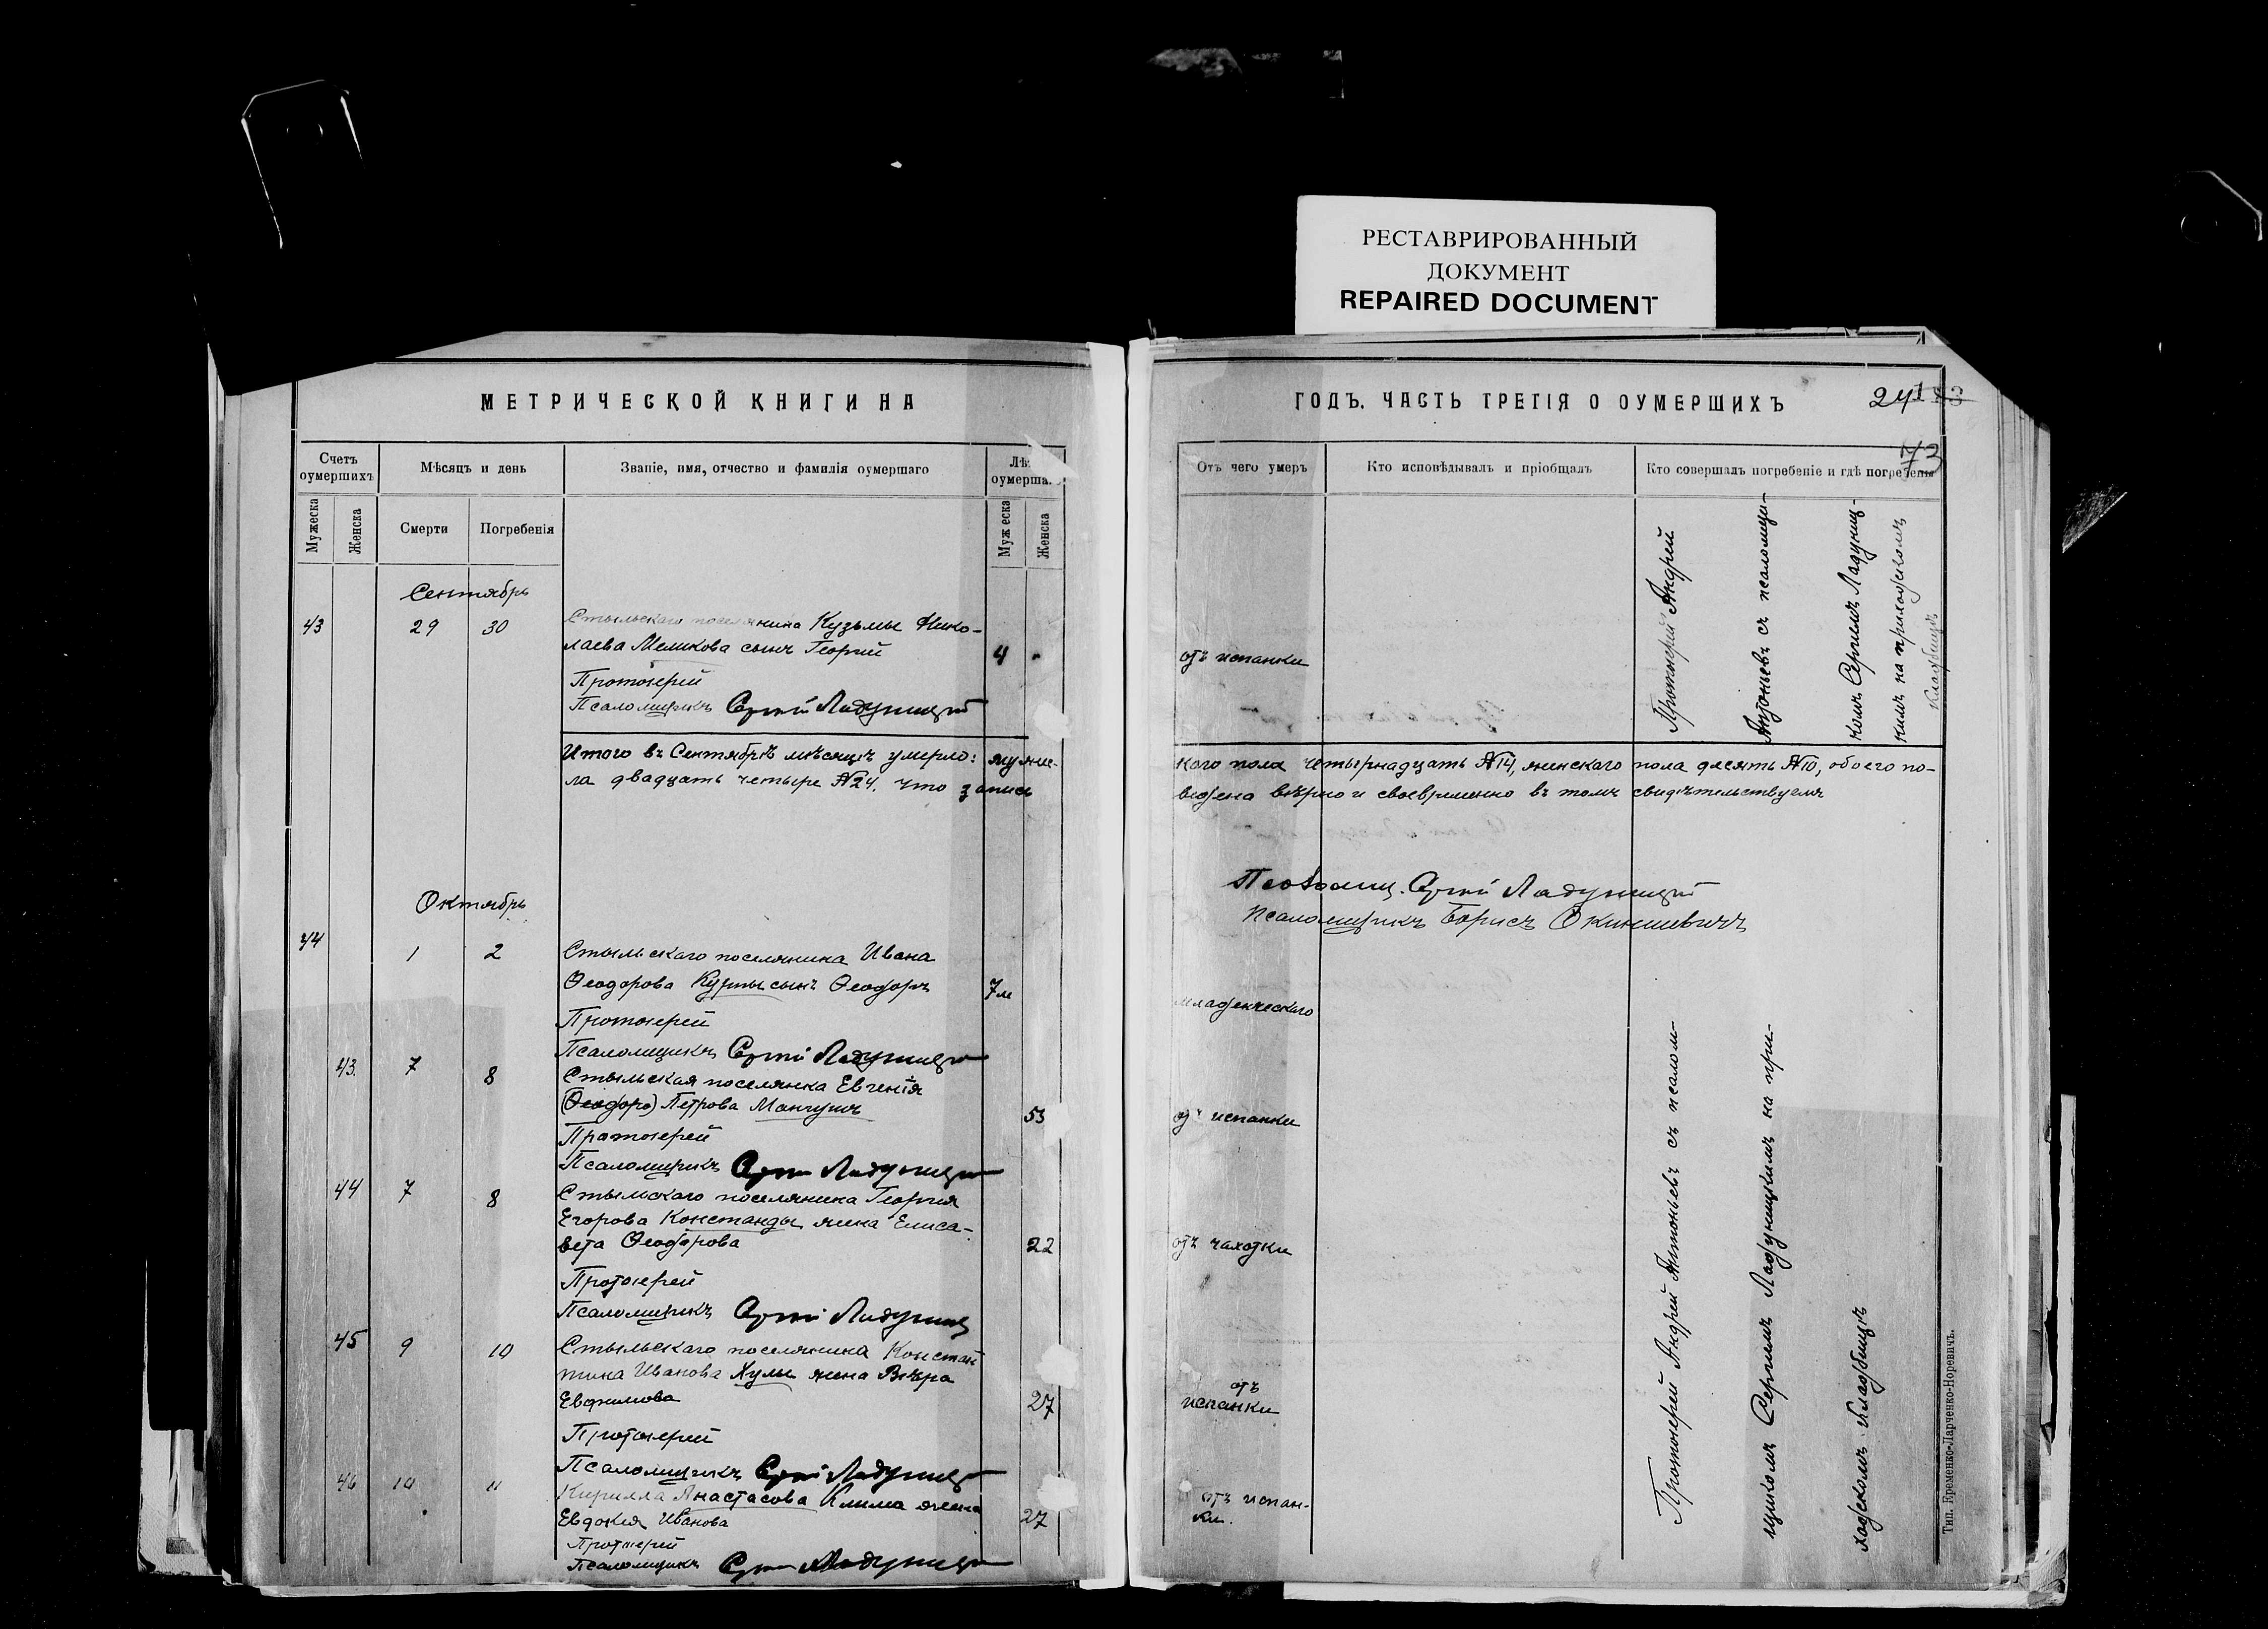 РЕСТАВРИРОВАННЫЙ
ДОКУМЕНТ
REPAIRED DOCUMENT
МЕТРИЧЕСКОЙ КНИГИ НА
Счетъ оумершихъ
Мѣсяцъ и день
Званіе, имя, отчество и фамилія оумершаго
Лѣ
оумерша.
Мужеска
Женска
Смерти
Погребенія
Муж еска
Женска
Сентябрь
43 29 30 Стыльскаго поселянина Кузьмы Нико-
лаева Меликова сынъ Георгій 4
Протоіерей
Псаломщикъ Сергій Ладушицкій
Итого въ Сентябрѣ мѣсяцѣ умерло: мужес-
ла двадцать четыре №24. Что запись
Октябрь
44 1 2 Стыльскаго поселянина Ивана
Ѳеодорова Курты сынъ Ѳеодоръ 7 м
Протоіерей
Псаломщикъ Сергій Ладушицкій
43. 7 8 Стыльская поселянка Евгенія
(Ѳеодоро) Петрова Мангушъ 53
Протоіерей
Псаломщикъ Сергій Ладушицкій
44 7 8 Стыльскаго поселянина Георгія
Егорова Констанды жена Елиса-
вета Ѳеодорова 22
Протоіерей
Псаломщикъ Сергій Ладушицкій
45 9 10 Стыльскаго поселянина Констан
тина Иванова Хулы жена Вѣра
Евфимова 27
Протоіерей
Псаломщикъ Сергій Ладушицкій
46 10 11 Кирилла Анастасова Клима жена
Евдокія Иванова 27
Протоіерей
Псаломщикъ Сергій Ладушицкій
ГОДЪ. ЧАСТЬ ТРЕТІЯ О ОУМЕРШИХЪ
241
73
Отъ чего умеръ
Кто исповѣдывалъ и пріобщалъ
Кто совершалъ погребеніе и гдѣ погребены
отъ испанки
Протоіерей Андрей
Антоньевъ съ псаломщи-
комъ Сергіемъ Ладушиц-
кимъ на приходскомъ
кладбищѣ
кого пола четырнадцать №14, женскаго пола десять №10, обоего по-
ведена вѣрно и своевременно въ томъ свидѣтельствуемъ
Псаломщ. Сергій Ладушицкій
Псаломщикъ Борисъ Окиншевичъ
младенческаго
отъ испанки
отъ чахотки
отъ
испанки
отъ испан-
ки.
Протоіерей Андрей Антоньевъ съ псалом-
щикомъ Сергіемъ Ладушицкимъ на при-
ходскомъ кладбищѣ
Тип. Еременко-Ларченко-Норевичъ.